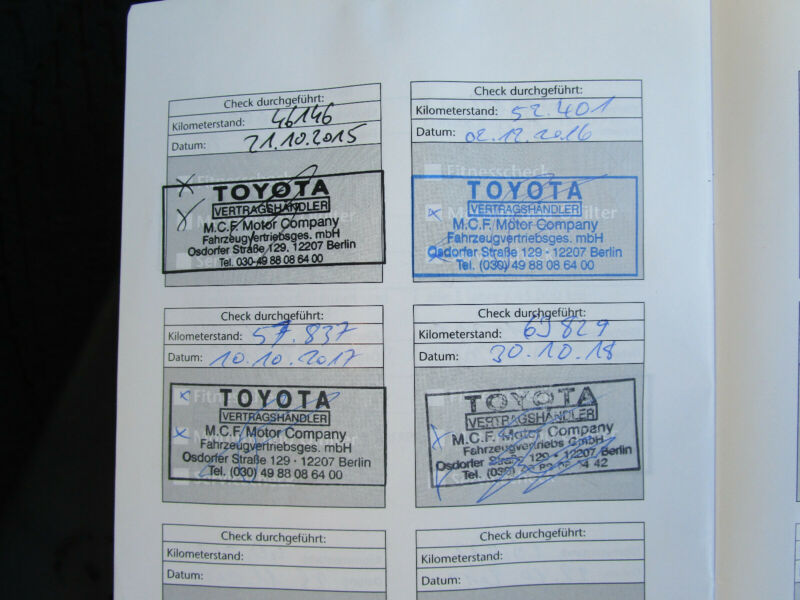 Check durchgeführt:
Kilometerstand: 46146
Datum: 21.10.2015
Fitnesscheck
TOYOTA
VERTRAGSHÄNDLER
M.C.F. Motor Company
Fahrzeugvertriebsges. mbH
Osdorfer Straße 129, 12207 Berlin
Tel. 030-49 88 08 64 00
Check durchgeführt:
Kilometerstand: 52.401
Datum: 02.12.2016
Fitnesscheck
TOYOTA
VERTRAGSHÄNDLER
M.C.F. Motor Company
Fahrzeugvertriebsges. mbH
Osdorfer Straße 129 · 12207 Berlin
Tel. (030) 49 88 08 64 00
Check durchgeführt:
Kilometerstand: 57.837
Datum: 10.10.2017
TOYOTA
VERTRAGSHÄNDLER
M.C.F. Motor Company
Fahrzeugvertriebsges. mbH
Osdorfer Straße 129 · 12207 Berlin
Tel. (030) 49 88 08 64 00
Check durchgeführt:
Kilometerstand: 69829
Datum: 30.10.18
TOYOTA
VERTRAGSHÄNDLER
M.C.F. Motor Company
Fahrzeugvertriebs GmbH
Osdorfer Straße 129 · 12207 Berlin
Tel. (030) 42
Check durchgeführt:
Kilometerstand:
Datum:
Check durchgeführt:
Kilometerstand:
Datum: